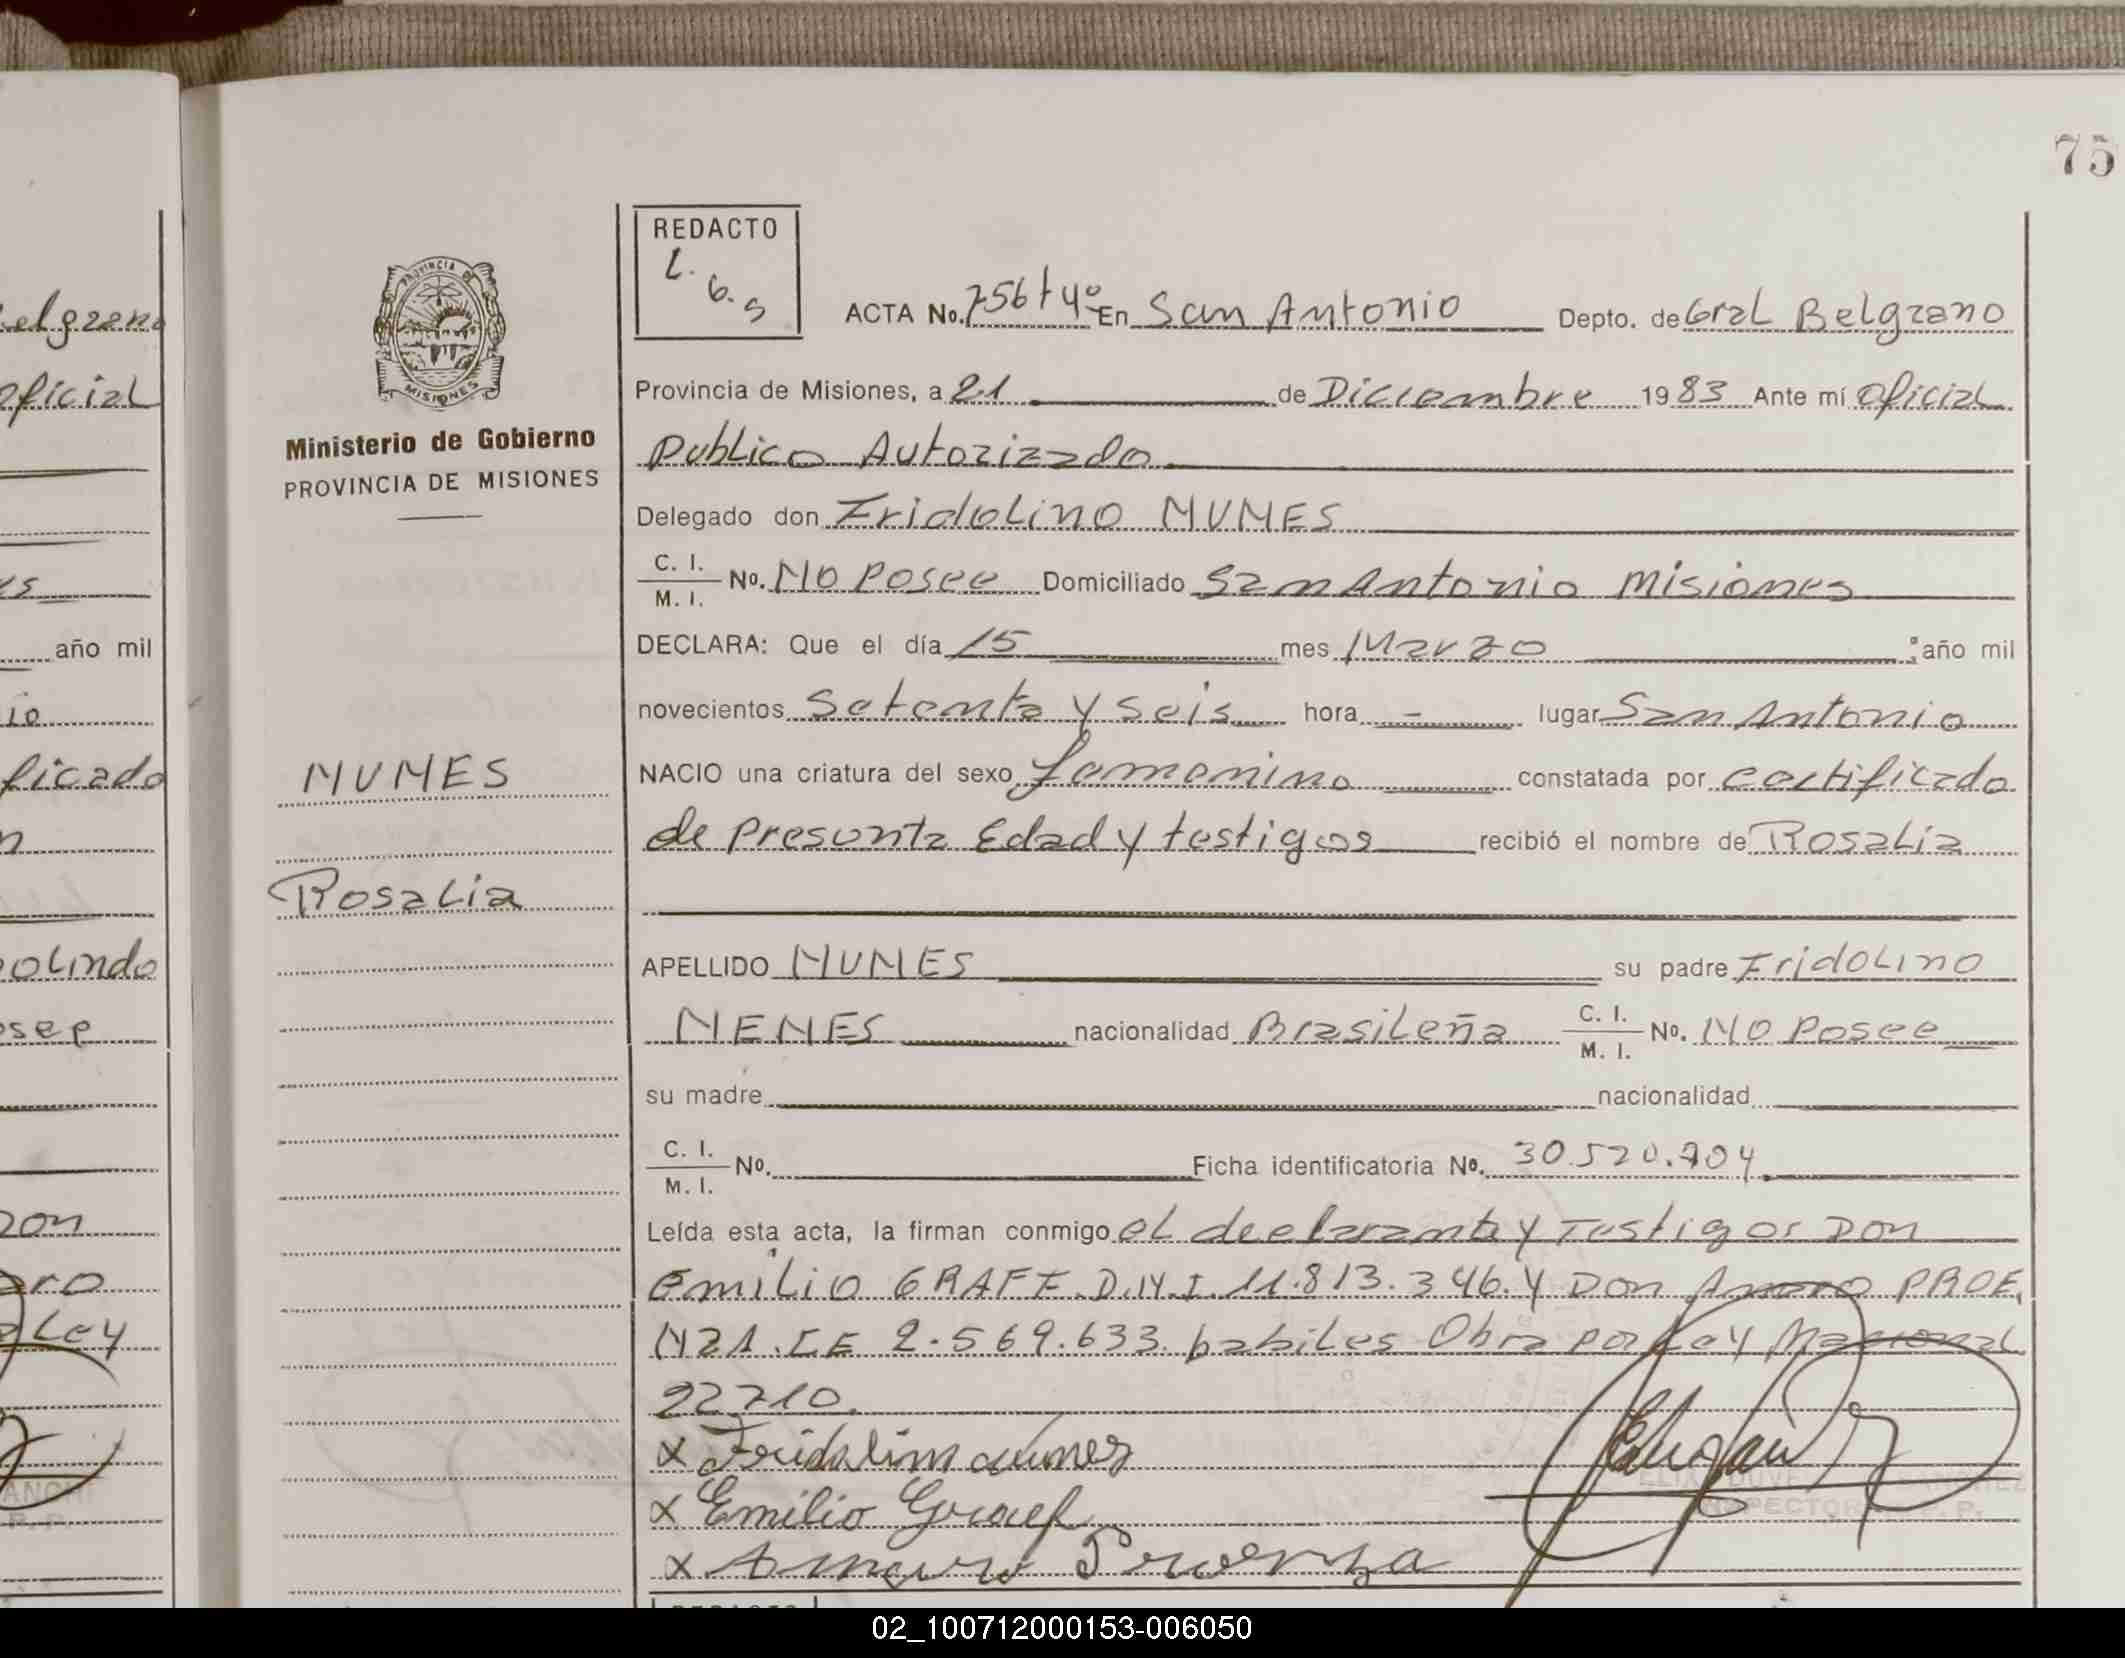 75
REDACTO
L. G. S
ACTA No. 756 t 4º En San Antonio Depto. de Gral Belgrano
Provincia de Misiones, a 21 de Diciembre 1983 Ante mí Oficial
Publico Autorizado
Delegado don Fridolino NUNES
C. I. / M. I. No. No Posee Domiciliado San Antonio Misiones
DECLARA: Que el día 15 mes Marzo año mil
novecientos Setenta y Seis hora - lugar San Antonio
NACIO una criatura del sexo femenino constatada por certificado
de Presunta Edad y testigos recibió el nombre de Rosalia
APELLIDO NUNES su padre Fridolino
NENES nacionalidad Brasileña C. I. / M. I. No. No Posee
su madre nacionalidad
C. I. / M. I. No. Ficha identificatoria No. 30.520.904
Leída esta acta, la firman conmigo el declarante y Testigos Don
Emilio GRAFF. D.N.I. 11.813.346. y Don Amaro PROE,
NZA. C E 2.569.633. habiles Obra por Ley Nacional
22710.
x Fridolim nunes
x Emilio Graef
x Amauro Proensa
SANCHEZ
INSPECTOR P. P.
PROVINCIA DE
MISIONES
Ministerio de Gobierno
PROVINCIA DE MISIONES
NUNES
Rosalia
elgrano
Oficial
es
año mil
io
ficado
n
olindo
osee
Don
aro
Ley
P. P.
02_100712000153-006050